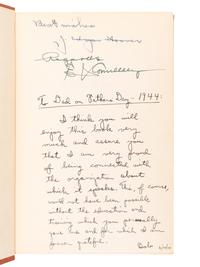 Best wishes
J. Edgar Hoover
Regards
E J Connelley
To Dad on Father's Day - 1944:
I think you will
enjoy this book very
much and assure you
that I am very proud
of being connected with
the organization about
which it speaks. This, of course,
would not have been possible
without the education and
training which you personally
gave me and for which I am
forever grateful.
Bob